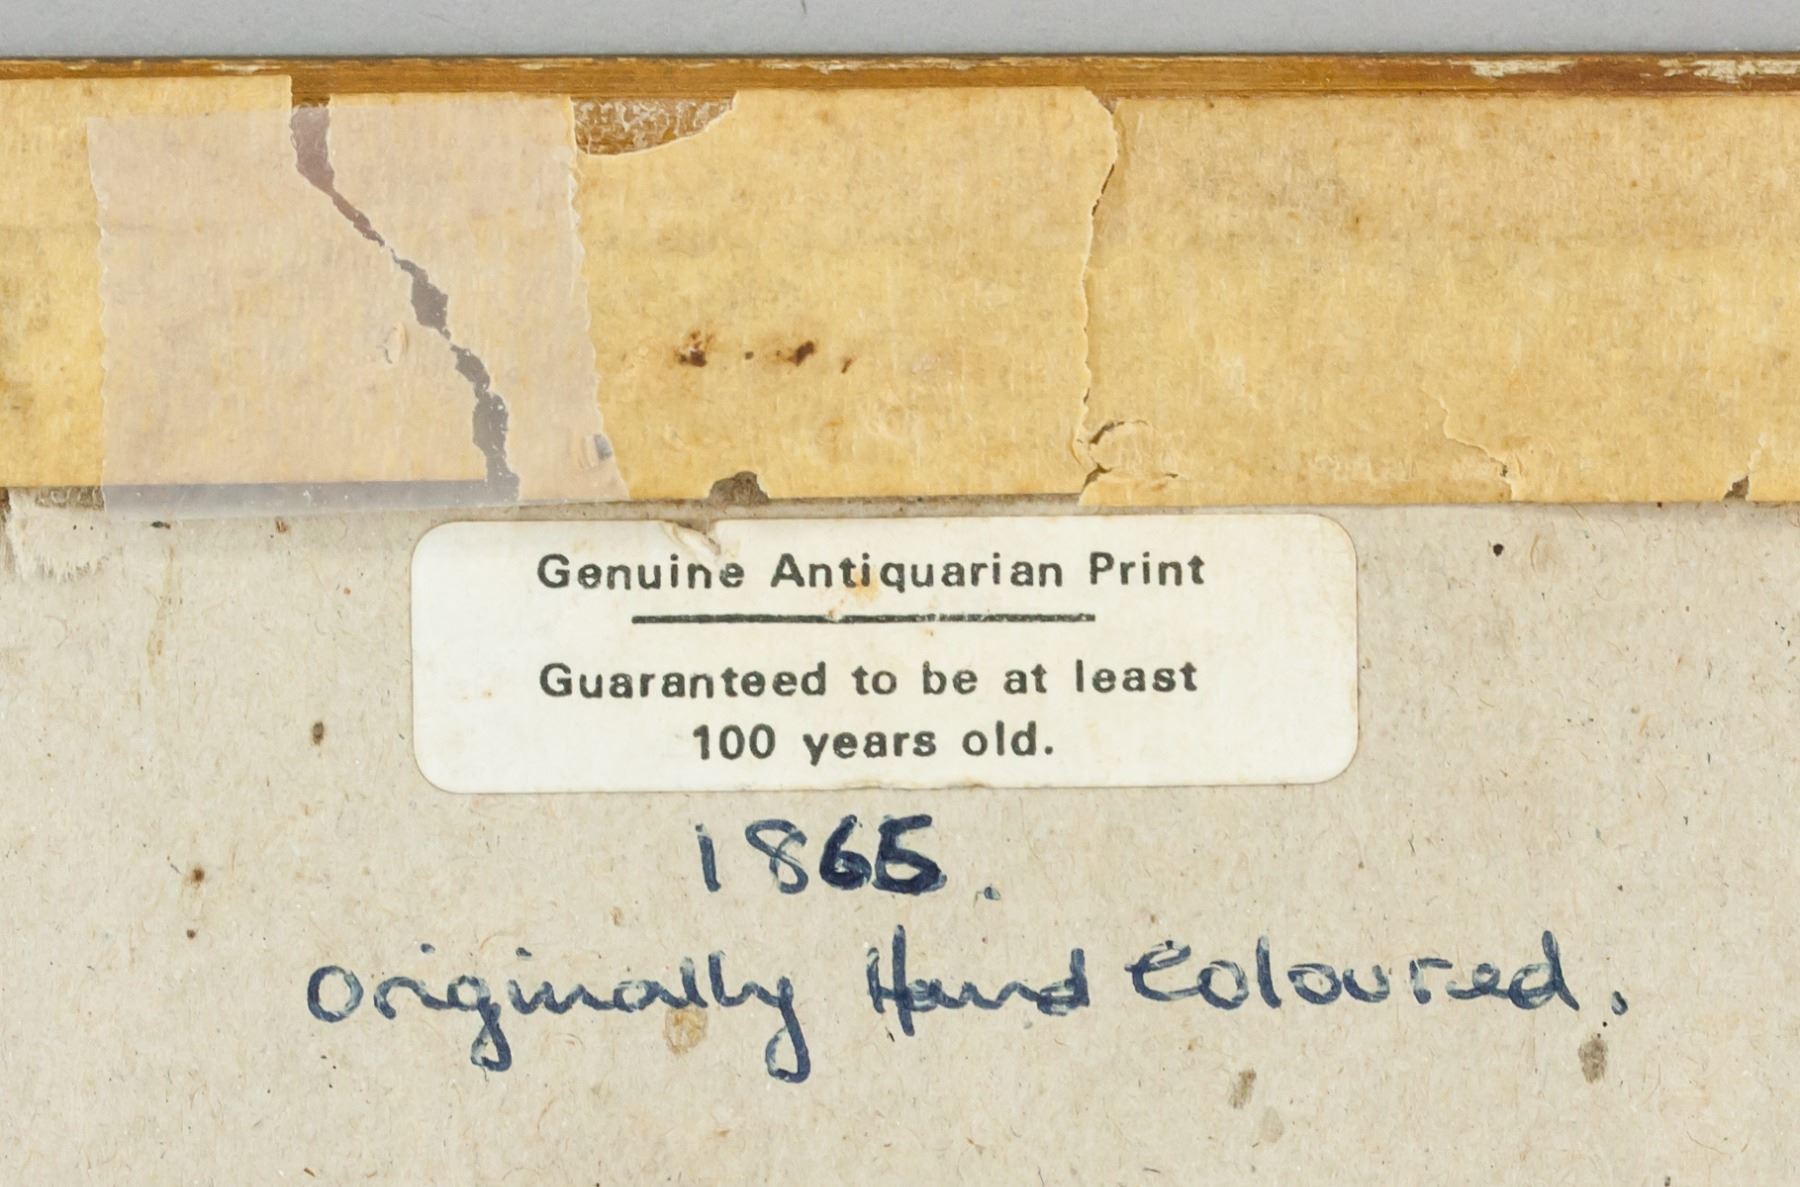 Genuine Antiquarian Print
Guaranteed to be at least
100 years old.
1865.
Originally Hand Coloured.